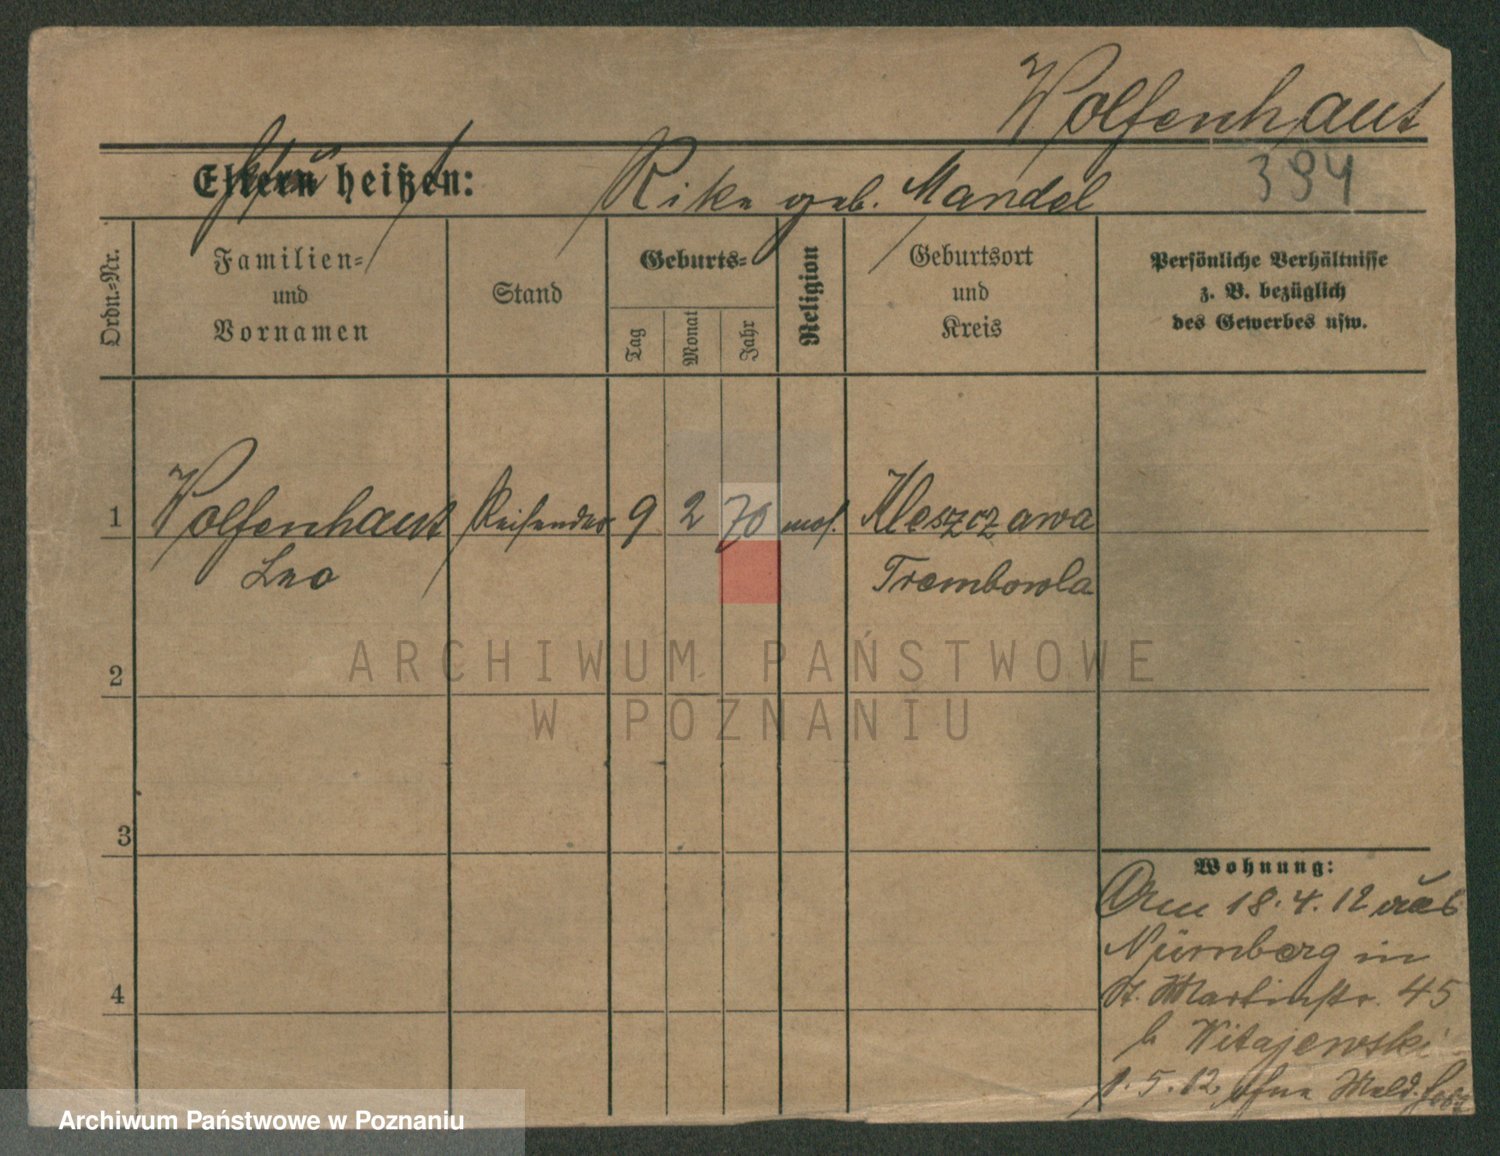 Wolfenhaut
394
Eltern heißen: Rike geb. Mandel
Ordn.-Nr.
Familien- und Vornamen
Stand
Geburts-
Tag
Monat
Jahr
Religion
Geburtsort und Kreis
Persönliche Verhältnisse
z. B. bezüglich
des Gewerbes usw.
1 Wolfenhaut Reisender 9 2 70 mos. Kleszczawa
Leo Trembowla
2
3
4
Wohnung:
Am 18.4.12 aus
Nürnberg in
St. Martinstr. 45
b Witajewski
1.5.12 ohne Meld. fort
ARCHIWUM PAŃSTWOWE
W POZNANIU
Archiwum Państwowe w Poznaniu